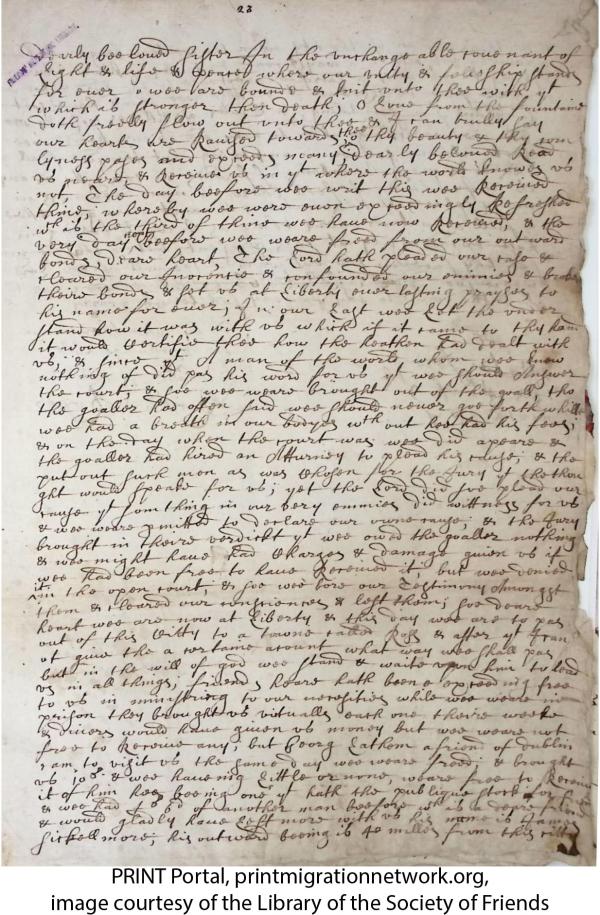 23
Dearly beeloued sister In the vnchangeable couenant of
light & life & peace where our vnity & fellship stands
for euer, wee are bound & knit vnto thee with yt
which is stronger then death, O loue from the fountaine
doth freely flow out vnto thee & I can trully say
our hearts are Raused towards thee thy beauty & thy com
lyness pases and exceeds many, dearly beloued Read
vs neare & Receiue vs in yt where the world knowes vs
not. The day beefore wee writ this wee Received
thine, whereby wee were euen exceedingly Refreshed
wch is the third of thine wee have now Received, & the
very day beefore wee weare freed from our outward
bonds, deare heart The Lord hath pleaded our case &
cleared our Inocencie & confounded our enimies & broke
theire bonds & set vs at Liberty euer lasting prayses to
his name for euer; In our Last wee Let the vnder
stand how it was with vs which if it came to thy hand
it would Certifie thee how the heathen had dealt with
vs, & since yt A man of the world whom wee knew
nothing of did pas his word for vs yt wee should Answer
the court, & soe wee weare brought out of the goall, tho
the goaller had often said wee should neuer goe forth while
wee had a breath in our bodyes with out hee had his fees,
& on the day when the court was wee did apeare &
the goaller had hired an Atturney to plead his cause, & the
put out such men as was Chosen for the Jury yt the thou
ght would speake for vs; yet the Lord did soe plead our
cause yt somthing in our very enmies did wittness for vs
& wee weare pmitted to declare our owne cause, & the Jury
brought in theire verdict yt wee owed the goaller nothing
& wee might haue had Charges & damage giuen vs if
wee had been free to haue Received it, but wee denied
it in the open court, & soe wee bore our Testimony Amongst
them & cleared our consciences & left them; soe deare
heart wee are now at Liberty & this day wee are to pas
out of this Citty to a towne called Ross & after yt I can
ot giue the a certaine acount what way wee shall pas
but in the will of god wee stand & waite vpon him to lead
vs in all things, friends heare hath been exceeding free
to vs in ministring to our necesities while wee weare in
prison they brought vs victualls each one theire weeke
& divers would haue giuen vs money but wee weare not
free to Receive any, but Georg Lathom a friend of dublin
cam to visit vs the same day wee weare freed & brought
vs 10s & wee haueing Little or none, weare free to Receiue
it of him hee beeing one yt hath the publique stock for
& wee had of another man beefore wch is a deare friend
& would gladly haue left more with vs his name is James
Sickellmore; his outward beeing is 40 milles from this citty
PRINT Portal, printmigrationnetwork.org,
image courtesy of the Library of the Society of Friends